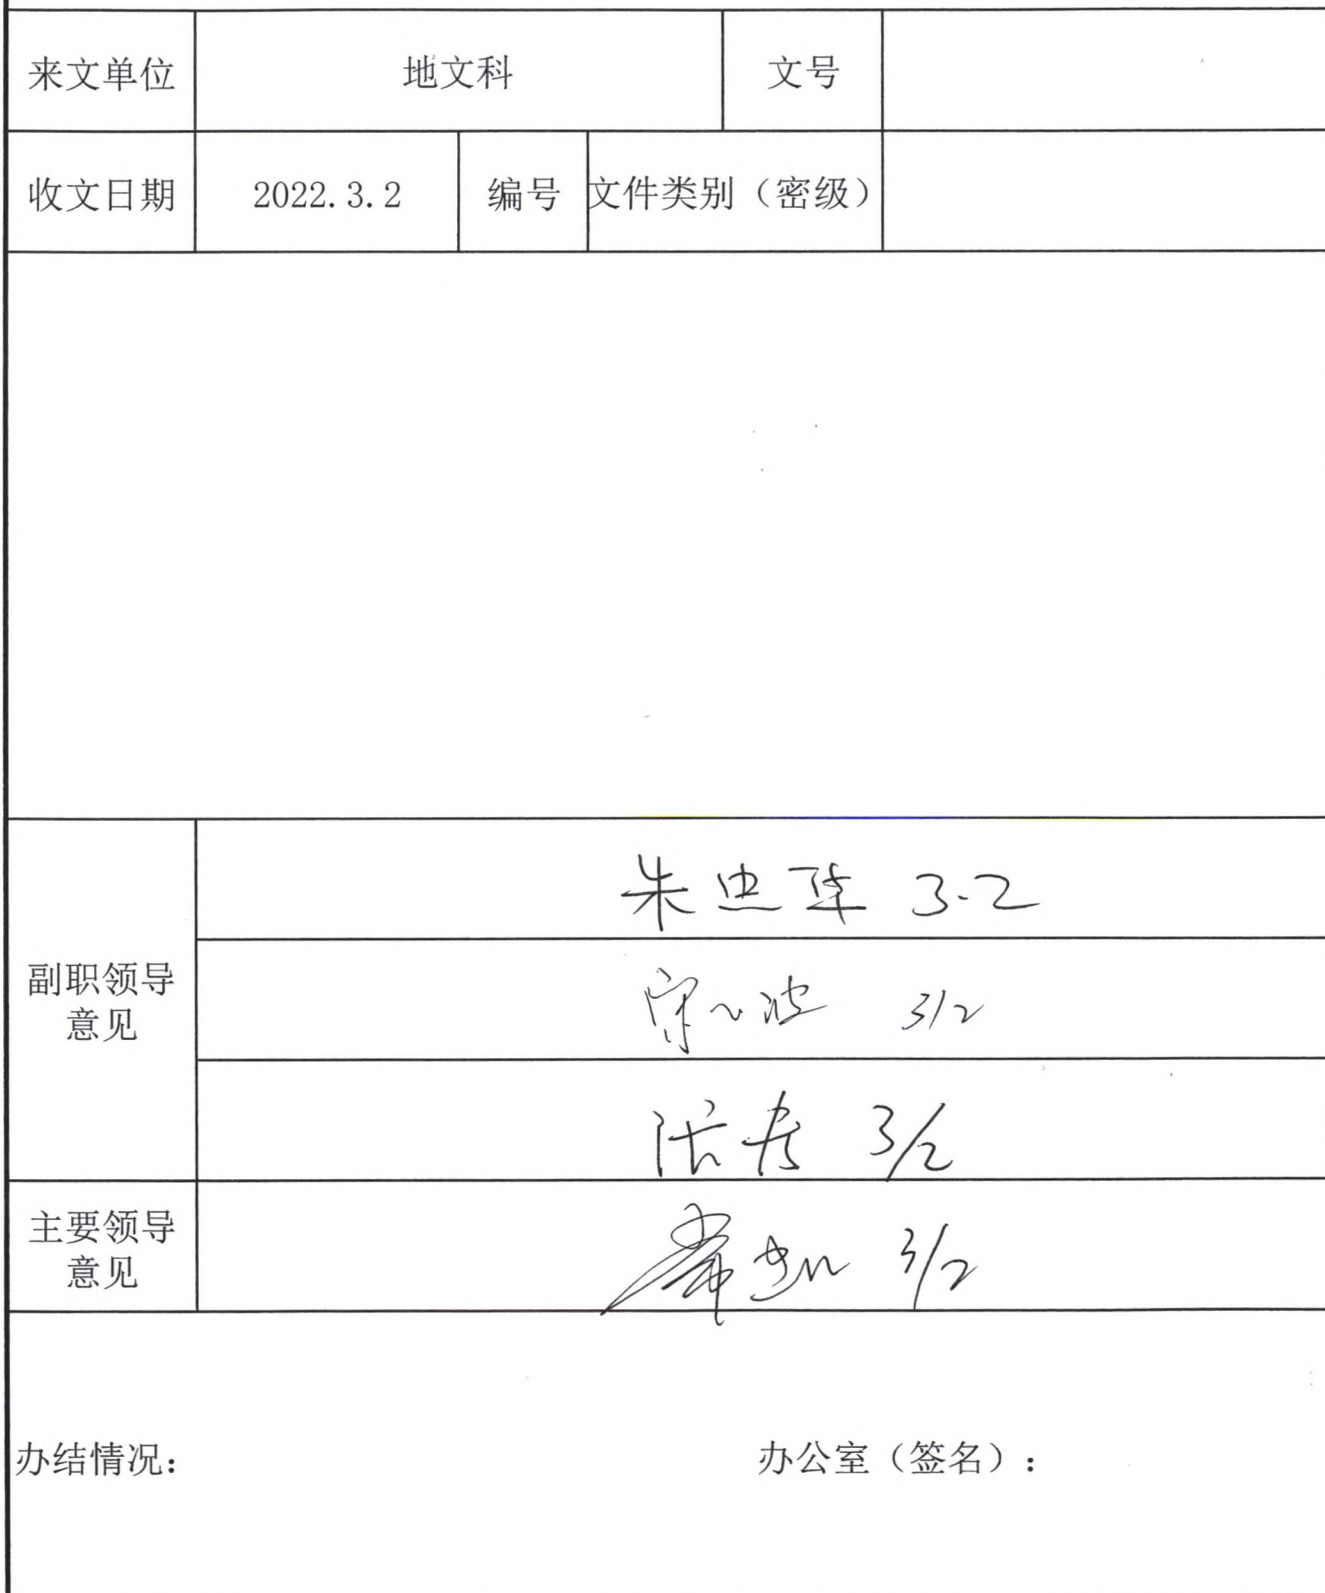 来文单位 地文科 文号
收文日期 2022.3.2 编号 文件类别（密级）
朱忠 3.2
副职领导
意见
波 3/2
3/2
主要领导
意见
3/2
办结情况： 办公室（签名）：